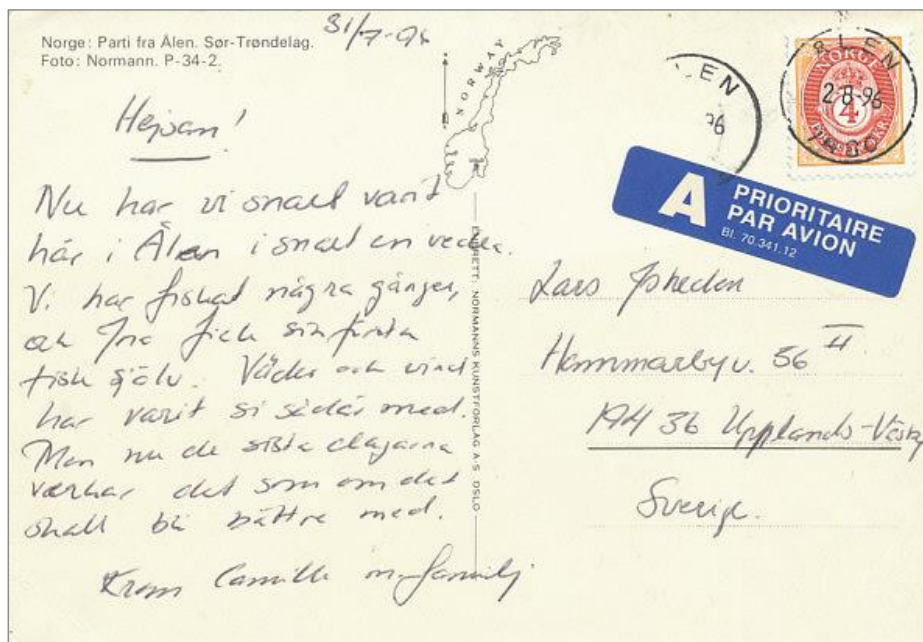 Norge: Parti fra Ålen. Sør-Trøndelag.
Foto: Normann. P-34-2.
31/7-96
NORWAY
Hejsan!
Nu har vi snart varit
här i Ålen i snart en vecka.
Vi har fiskat några gånger,
och fick sin första
fisk själv. Väder och vind
har varit si sådär med.
Men nu de sista dagarna
verkar det som om det
skall bli bättre med.
Kram Camilla m. familj
ENERETT: NORMANNS KUNSTFORLAG A/S, OSLO
LEN
96
ÅLEN
2-8-96
NORGE
4
A PRIORITAIRE
PAR AVION
Bl. 70.341.12
Lars
Hammarbyv. 56 II
194 36 Upplands-Väsby
Sverige.